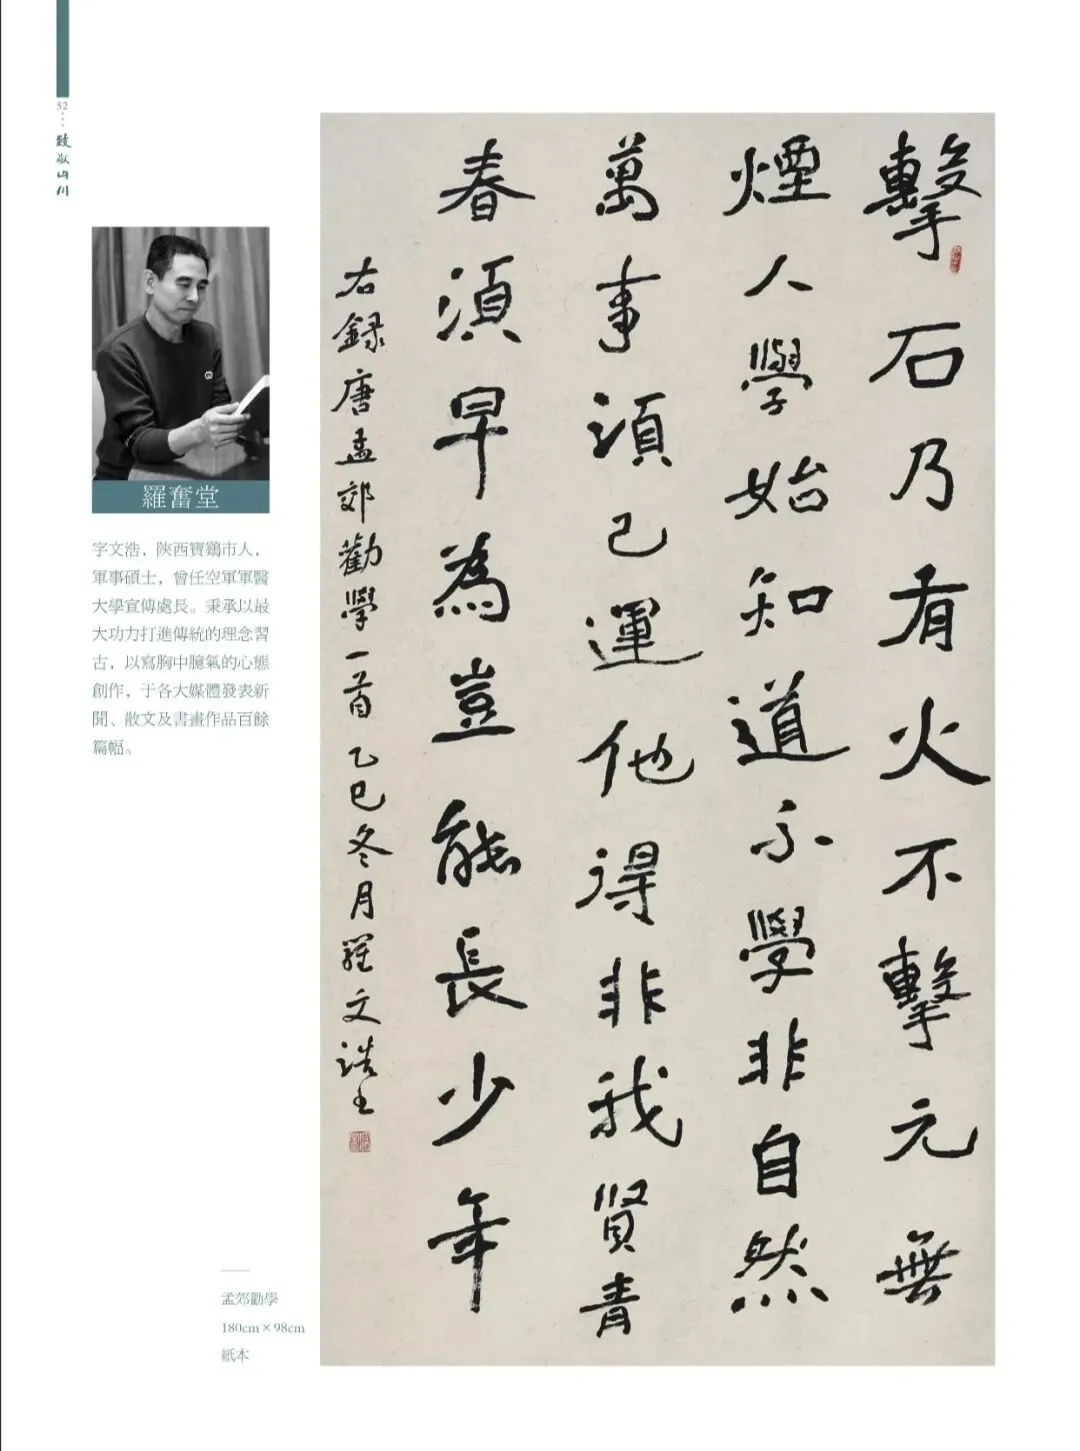 52
致敬山川
羅奮堂
字文浩，陝西寶鷄市人，
軍事碩士，曾任空軍軍醫
大學宣傳處長。秉承以最
大功力打進傳統的理念習
古，以寫胸中臆氣的心態
創作，于各大媒體發表新
聞、散文及書畫作品百餘
篇幅。
擊石乃有火不擊元無
煙人學始知道不學非自然
萬事須己運他得非我賢青
春須早為豈能長少年
右録唐孟郊勸學一首乙巳冬月羅文浩書
孟郊勸學
180cm×98cm
紙本